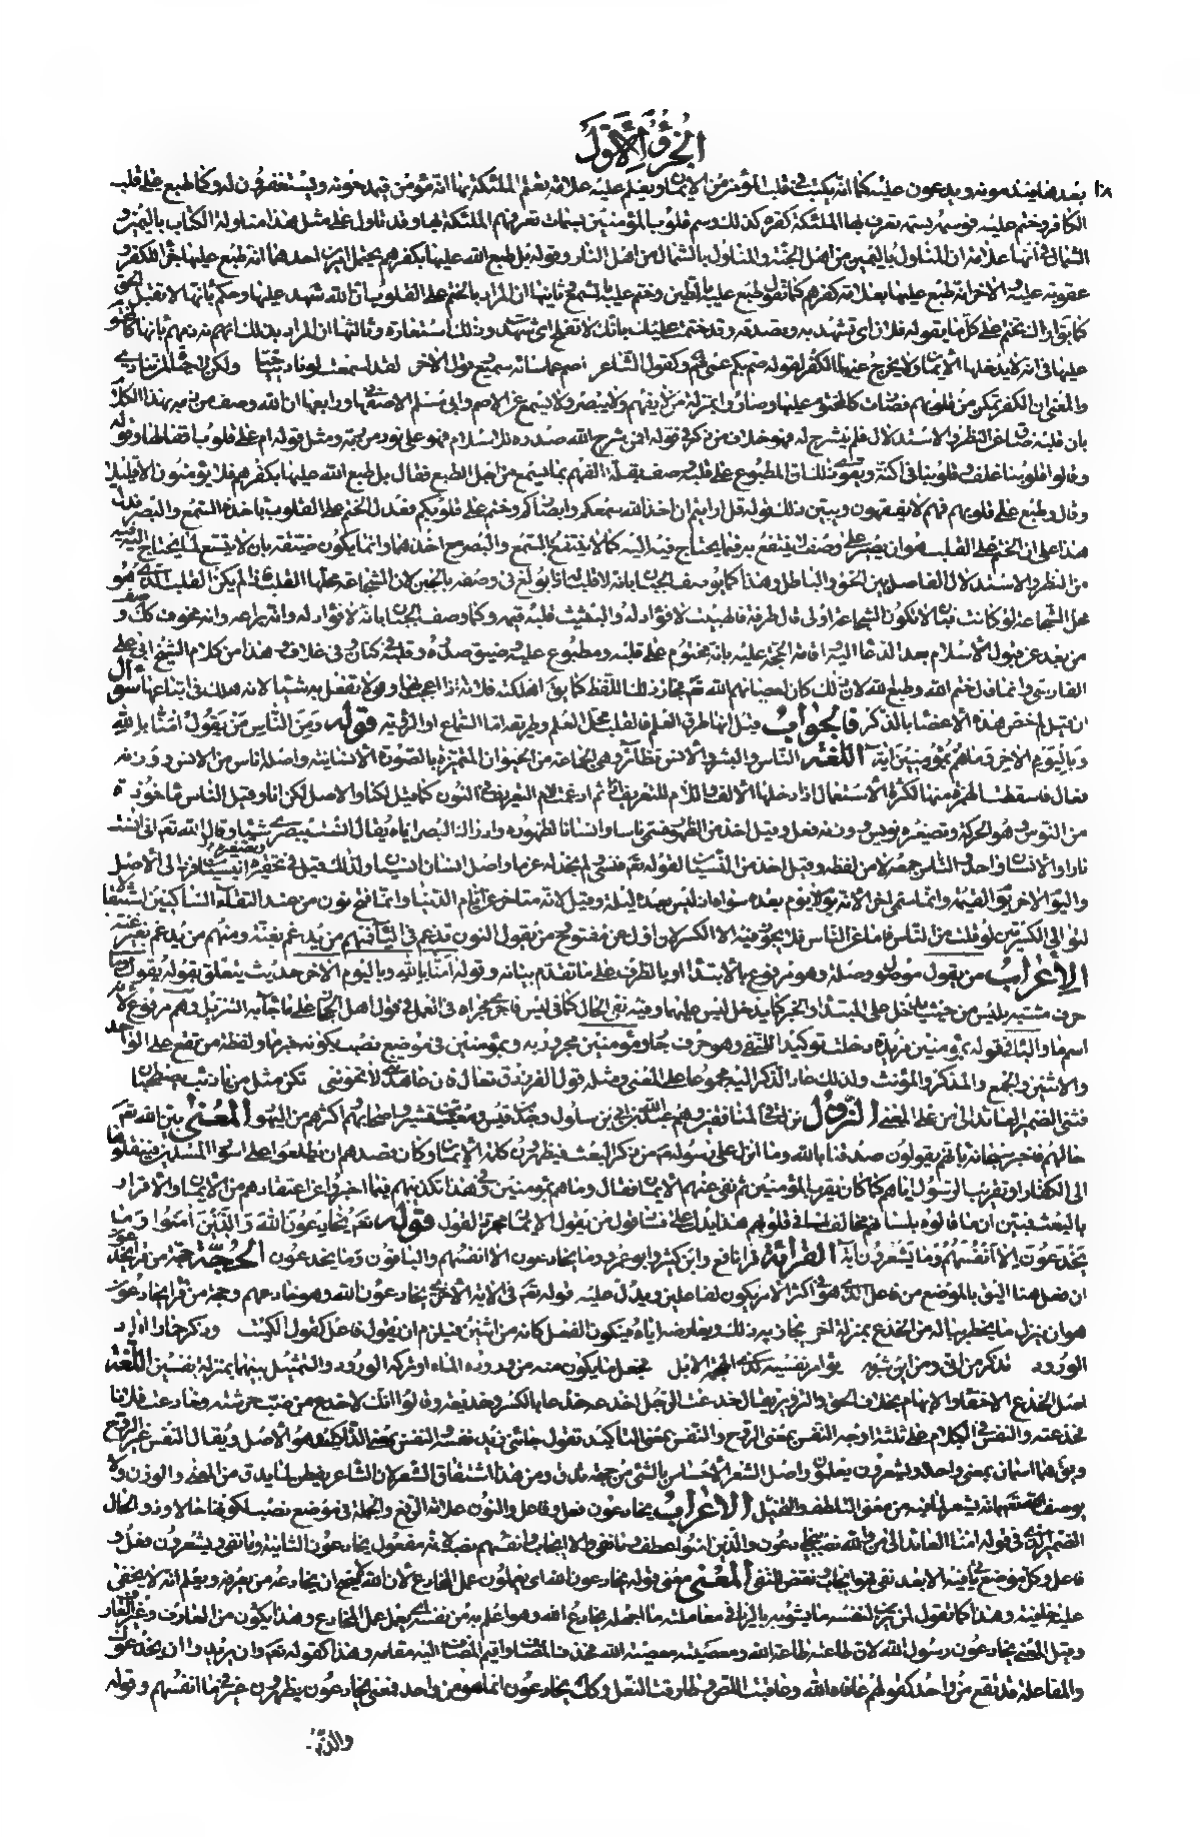 الجزؤ الاول
١٨
بعد هذا فيذمونه ويدعون عليه كما انه يكتب في قلب المؤمن الايمان ويعلم عليه علامة تعلم الملئكة بها انه مؤمن فيمدحونه ويستغفرون له وكما طبع على قلب
الكافر وختم عليه فوسمه بسمة تعرف بها الملئكة كفره كذلك وسم قلوب المؤمنين بسمات تعرفهم الملئكة بها وقد تاول على مثل هذا مناولة الكتاب باليمين و
الشمال في انها علامة ان المناول باليمين من اهل الجنة والمناول بالشمال من اهل النار وقوله بل طبع الله عليها بكفرهم يحتمل امرين احدهما انه طبع عليها جزاء للكفر و
عقوبة عليه والاخر انه طبع عليها بعلامة كفرهم كما تقول طبع عليه بالطين وختم عليه بالشمع وثانيها ان المراد بالختم على القلوب ان الله شهد عليها وحكم بانها لا تقبل الحق
كما يقال اراك تختم على كل ما يقوله فلان اي تشهد به وتصدقه وقد ختمت عليك بانك لا تفلح اي شهدت وذلك استعارة وثالثها ان المراد بذلك انه تعالى ذمهم بانها كالمختوم
عليها في انه لا يدخلها الايمان ولا يخرج عنها الكفر لقوله صم بكم عمي وكقول الشاعر اصم عما ساءه سميع وقول الاخر لقد اسمعت لو ناديت حيا ولكن لا حياة لمن تنادي
والمعنى ان الكفر تمكن من قلوبهم فصارت كالمختوم عليها وصاروا بمنزلة من لا يفهم ولا يبصر ولا يسمع عن الاصم وابي مسلم الاصفهاني ورابعها ان الله وصف من ذمه بهذا الكلام
بان قلبه ضاق عن النظر والاستدلال فلم ينشرح له فهو خلاف من ذكره في قوله افمن شرح الله صدره للاسلام فهو على نور من ربه ومثل قوله ام على قلوب اقفالها وقوله
وقالوا قلوبنا غلف وقلوبنا في اكنة ويقوي ذلك ان المطبوع على قلبه وصف بقلة الفهم بما يسمع من اجل الطبع فقال بل طبع الله عليها بكفرهم فلا يؤمنون الا قليلا
وقال وطبع على قلوبهم فهم لا يفقهون ويبين ذلك قوله قل ارايتم ان اخذ الله سمعكم وابصاركم وختم على قلوبكم فعدل الختم على القلوب باخذه السمع والبصر فدل
هذا على ان الختم على القلب هو ان يصير على وصف لا ينتفع به فيما يحتاج فيه اليه كما لا ينتفع بالسمع والبصر مع اخذهما وانما يكون ضيقه بان لا يتسع لما يحتاج اليه فيه
من النظر والاستدلال الفاصل بين الحق والباطل وهذا كما يوصف الجبان بانه لا قلب له اذا بولغ في وصفه بالجبن لان الشجاعة محلها القلب فاذا لم يكن القلب الذي هو
محل الشجاعة لو كانت فبان لا تكون الشجاعة اولى قال طرفة فالهبيت لا فؤاد له والثبيت قلبه قيمه وكما وصف الجبان بانه لا فؤاد له وانه يراعة وانه مجوف كذلك وصف
من بعد عن قبول الاسلام بعد الدعاء اليه واقامة الحجة عليه بانه مختوم على قلبه ومطبوع عليه وضيق صدره وقلبه في كنان وفي غلاف وهذا من كلام الشيخ ابي على
الفارسي وانما قال ختم الله وطبع الله لان ذلك كان لعصيانهم الله تعالى فجاز ذلك اللفظ كما يقال اهلكته فلانة اذا اعجب بها وهي لا تفعل به شيئا لانه هلك في اتباعها سؤال
ان قيل لم خص هذه الاعضاء بالذكر فالجواب قيل انها طرق العلم فالقلب محل العلم وطريقه اما السماع او الرؤية قوله ومن الناس من يقول امنا بالله
وباليوم الاخر وما هم بمؤمنين اية اللغة الناس والبشر والانس نظائر وهي الجماعة من الحيوان المتميزة بالصورة الانسانية واصله اناس من الانس ووزنه
فعال فاسقطت الهمزة منها لكثرة الاستعمال اذا دخلها الالف واللام للتعريف ثم ادغمت لام التعريف في النون كما قيل لكنا والاصل لكن انا وقيل الناس ماخوذ
من النوس وهو الحركة وتصغيره نويس ووزنه فعل وقيل اخذ من الظهور فسمي ناسا وانسانا لظهوره وادراك البصر اياه يقال انست ببصري شيئا وقال الله تعالى اني انست
نارا والانسان واحد والناس جمعه لا من لفظه وقيل اخذ من النسيان لقوله تعالى فنسي ولم نجد له عزما واصل انسان انسيان ولذلك قيل في تحقيره وتصغيره انيسيان فرد الى الاصل
واليوم الاخر يوم القيمة وانما سمي اخر لانه يوم لا يوم بعده سواه ان ليس بعده ليلة وقيل لانه متاخر عن ايام الدنيا وانما فتح نون من عند التقاء الساكنين استثقالا
لتوالي الكسرتين لو قلت من الناس فاما عن الناس فلا يجوز فيه الا الكسر لان اول عن مفتوح من يقول النون تدغم في الياء فمنهم من يدغم بغنة ومنهم من يدغم بغير غنة
الاعراب من يقول موصول وصلة وهو مرفوع بالابتداء او بالظرف على ما تقدم بيانه وقوله امنا بالله وباليوم الاخر حديث يتعلق بقوله يقول وما
حرف مشبه بليس من حيث يدخل على المبتدا والخبر كما يدخل ليس عليهما وفيه نفي الحال كما في ليس فاجري مجراه في العمل في قول اهل الحجاز على ما جاء به التنزيل وهم مرفوع لانه
اسم ما والباء في قوله بمؤمنين مزيدة دخلت توكيدا للنفي وهو حرف جار ومؤمنين مجرور به وبمؤمنين في موضع نصب بكونه خبر ما ولفظة من تقع على الواحد
والاثنين والجمع والمذكر والمؤنث ولذلك عاد الذكر اليه مجموعا على المعنى ومثله قول الفرزدق تعال فان عاهدتني لا تخونني نكن مثل من يا ذئب يصطحبان
فثنى الضمير العائد الى من على المعنى النزول نزلت في المنافقين وهم عبد الله بن ابي بن سلول وجد بن قيس ومعتب بن قشير واصحابهم واكثرهم من اليهود المعنى بين الله تعالى
حالهم فاخبر سبحانه بانهم يقولون صدقنا بالله وما انزل على رسوله من ذكر البعث فيظهرون كلمة الايمان وكان قصدهم ان يطلعوا على اسرار المسلمين فينقلوها
الى الكفار او تقريب الرسول اياهم كما كان يقرب المؤمنين ثم نفى عنهم الايمان فقال وما هم بمؤمنين وفي هذا تكذيبهم فيما اخبروا عن اعتقادهم من الايمان والاقرار
بالبعث فبين ان ما قالوه بلسانهم مخالف لما في قلوبهم وهذا يدل على فساد قول من يقول الايمان مجرد القول قوله تعالى يخادعون الله والذين امنوا وما
يخدعون الا انفسهم وما يشعرون اية القراءة قرأ نافع وابن كثير وابو عمرو وما يخادعون الا انفسهم والباقون وما يخدعون الحجة حجة من قرا يخدعون
ان فعل هنا اليق بالموضع من فاعل الذي هو في اكثر الامر يكون لفاعلين ويدل عليه قوله تعالى في الاية الاخرى يخادعون الله وهو خادعهم وحجة من قرا يخادعون
هو ان ينزل ما يخطر بباله من الخدع بمنزلة اخر يجازيه ذلك ويعارضه اياه فيكون الفعل كانه من اثنين فيلزم ان يقول فاعل كقول الكميت وذكر حمارا اراد
الورود تذكر من انى ومن اين شربه يؤامر نفسيه كذي الهجمة الابل فجعل ما يكون منه من وروده الماء او تركه الورود والتمثيل بينهما بمنزلة نفسين اللغة
اصل الخدع الاخفاء والابهام بخلاف الحق والتزوير يقال خدعت الرجل اخدعه خدعا بالكسر وخديعة وقالوا انك لاخدع من ضب حرشته وخادعت فلانا
فخدعته والنفس في الكلام على ثلثة اوجه النفس بمعنى الروح والنفس بمعنى التاكيد تقول جاءني زيد نفسه والنفس بمعنى الذات وهو الاصل ويقال النفس غير الروح
ويقال هما اسمان بمعنى واحد ويشعرون يعلمون واصل الشعر الاحساس بالشيء من جهة تدق ومن هذا اشتقاق الشعر لان الشاعر يفطن لما يدق من المعنى والوزن ولا
يوصف الله تعالى بانه يشعر لما فيه من معنى التلطف والتخيل الاعراب يخادعون فعل وفاعل والنون علامة الرفع والجملة في موضع نصب لكونها حالا وذو الحال
الضمير الذي في قوله امنا العائد الى من والله نصب بيخادعون والذين امنوا عطف وما نفي والا ايجاب وانفسهم نصب لانه مفعول يخادعون الثانية وما نفي ويشعرون فعل و
فاعل وكل موضع ياتي فيه الا بعد نفي فهو ايجاب ونقض للنفي المعنى معنى قوله يخادعون الله اي يعملون عمل المخادع لان الله لا يصح ان يخادعه من يعرفه ويعلم انه لا يخفى
عليه خافية وهذا كما تقول لمن يزين لنفسه ما يشوبه بالرياء في معاملته ما اجهله يخادع الله وهو اعلم به من نفسه اي يعمل عمل المخادع وهذا يكون من العارف وغير العارف
وقيل المعنى يخادعون رسول الله لان طاعته طاعة الله ومعصيته معصية الله فحذف المضاف واقيم المضاف اليه مقامه وهذا كقوله تعالى وان يريدوا ان يخدعوك
والمفاعلة قد تقع من واحد كقولهم عافاه الله وعاقبت اللص وطارقت النعل وكذلك يخادعون انما هو من واحد فمعنى يخادعون يظهرون غير ما في انفسهم وقوله
والذين